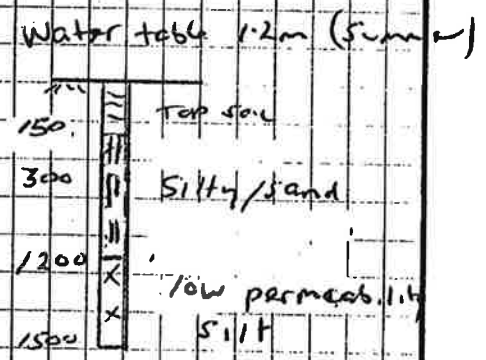 Water table 1.2m (Summer)
150. Top soil
300 Silty/sand
1200 low permeability
silt
1500